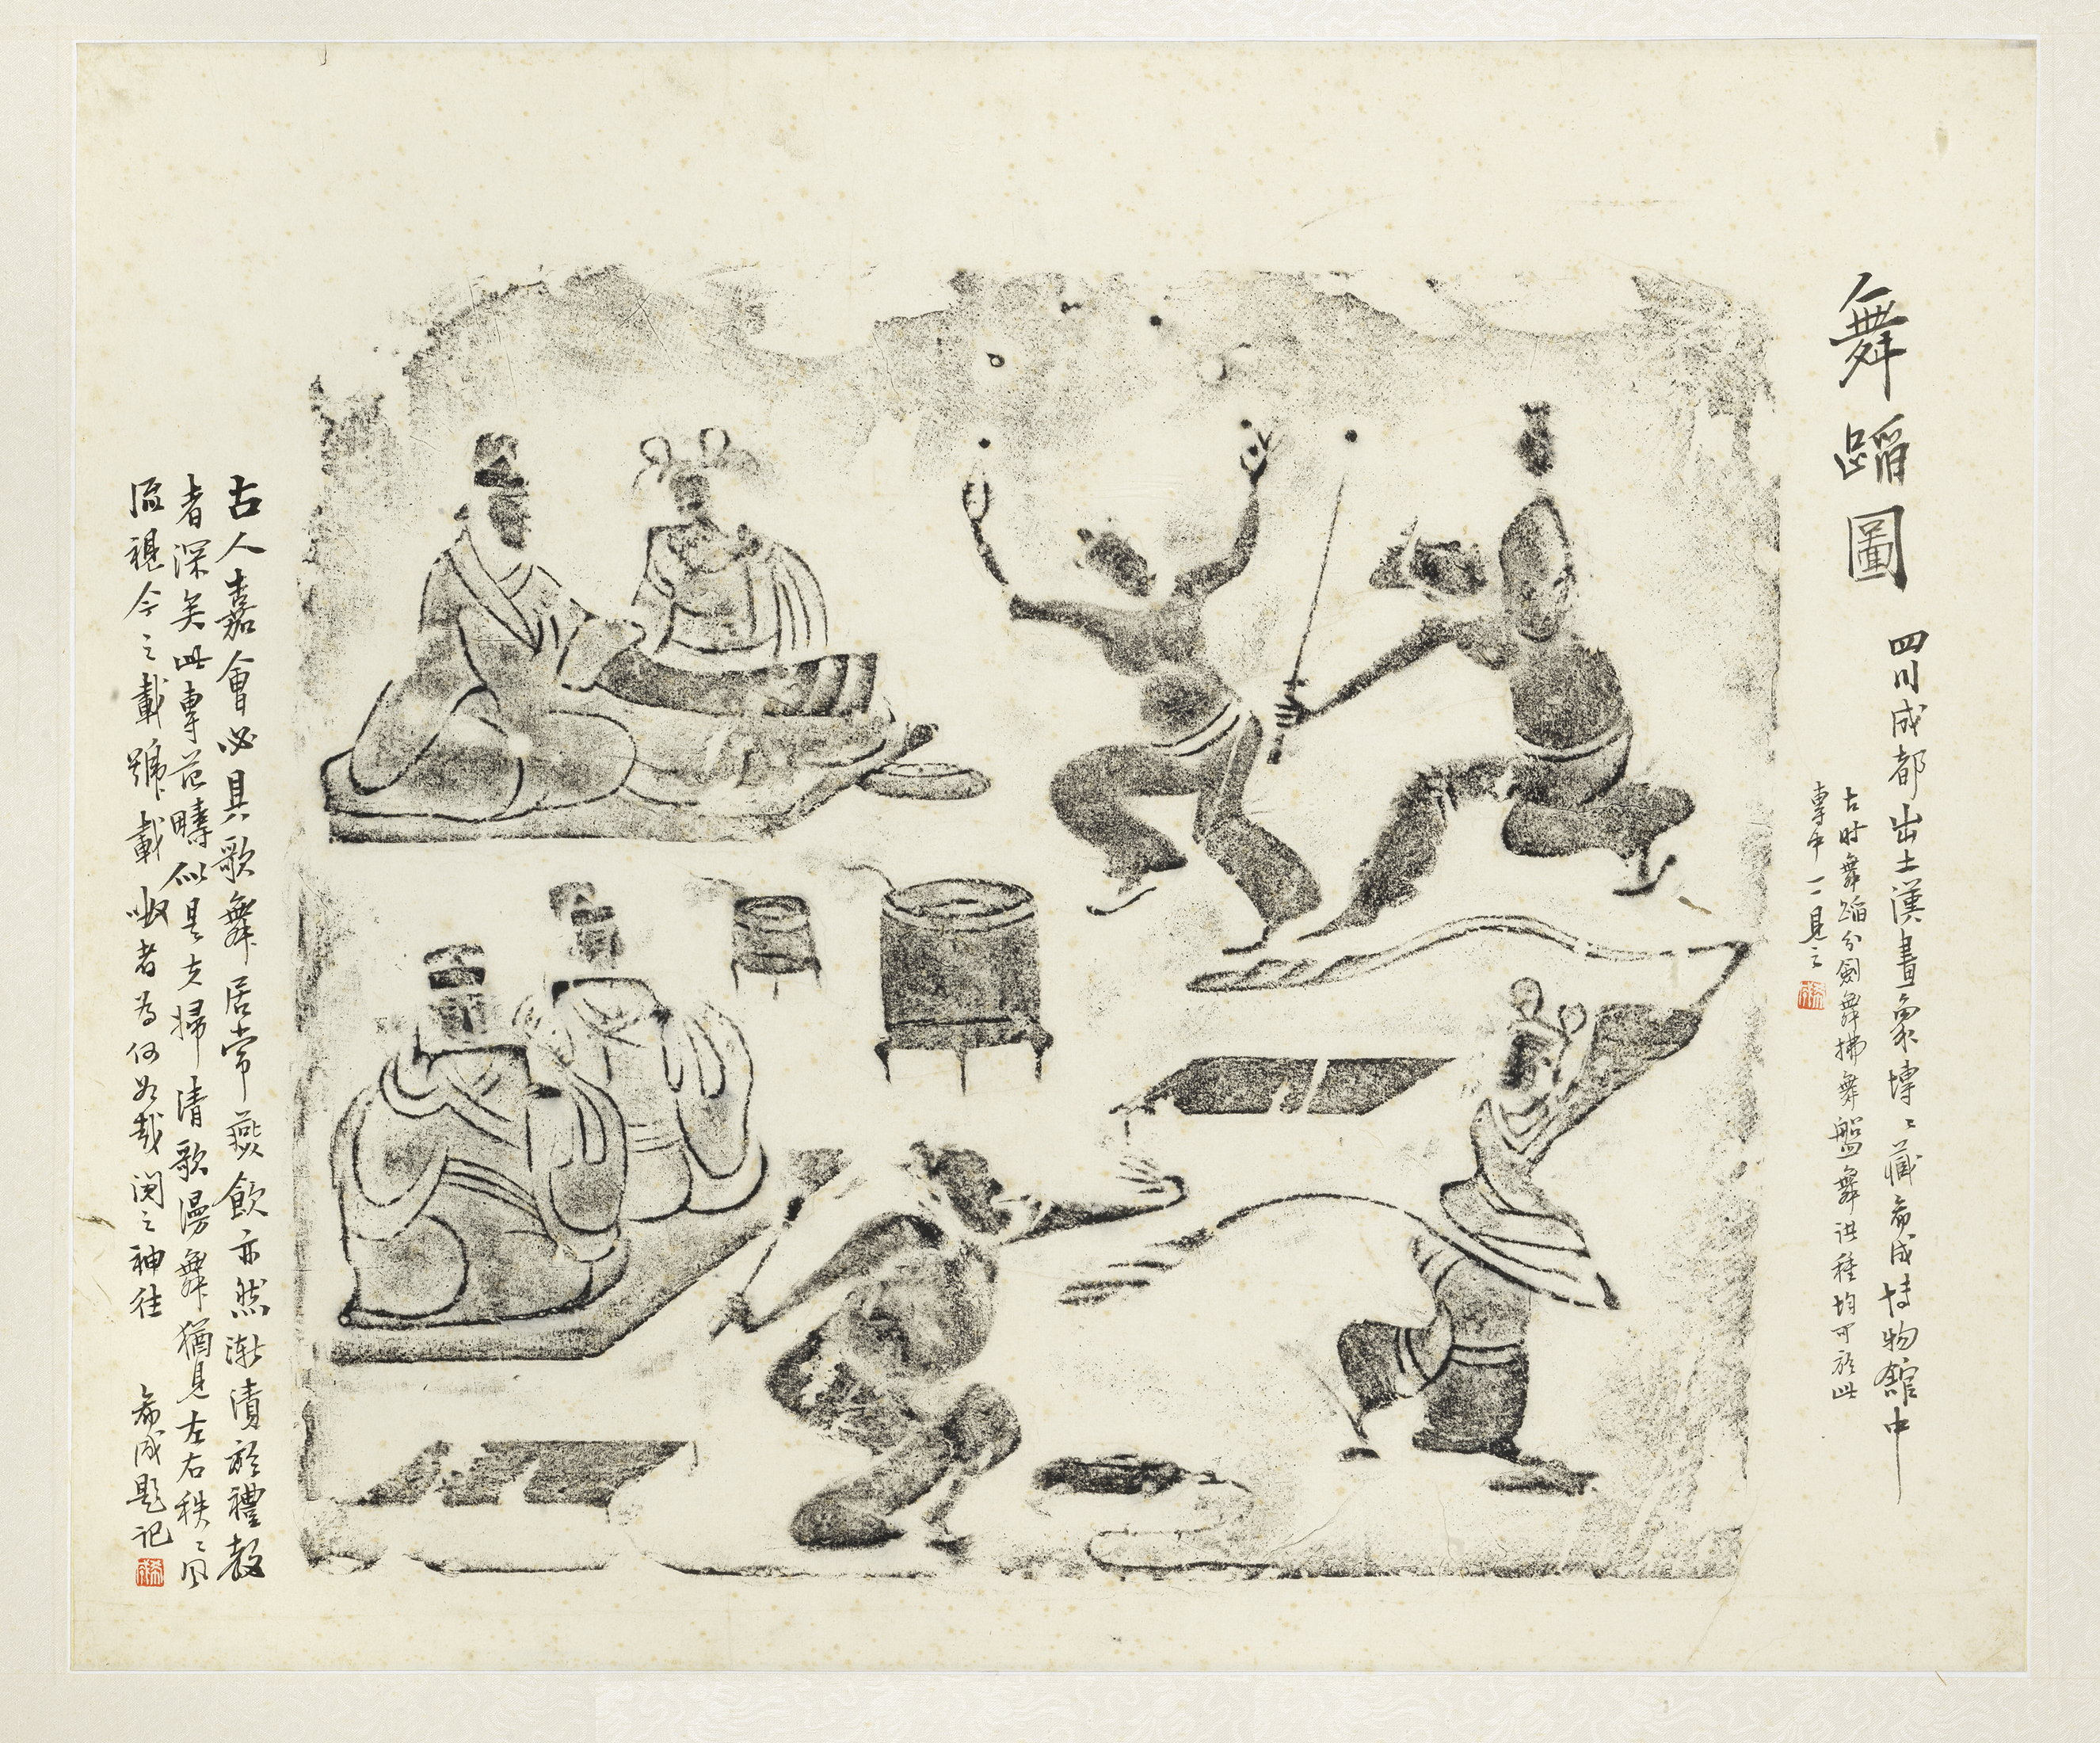 舞蹈圖
四川成都出土漢畫象塼塼藏希成博物館中
古时舞蹈分劍舞拂舞盤舞諸種均可於此
專中一一見之
古人嘉會必具歌舞居常燕飲亦然漸漬於禮教
者深矣此專范疇似是夫婦清歌漫舞猶見左右秩秩風
流視今之載號載呶者為何如哉閱之神往
希成題記